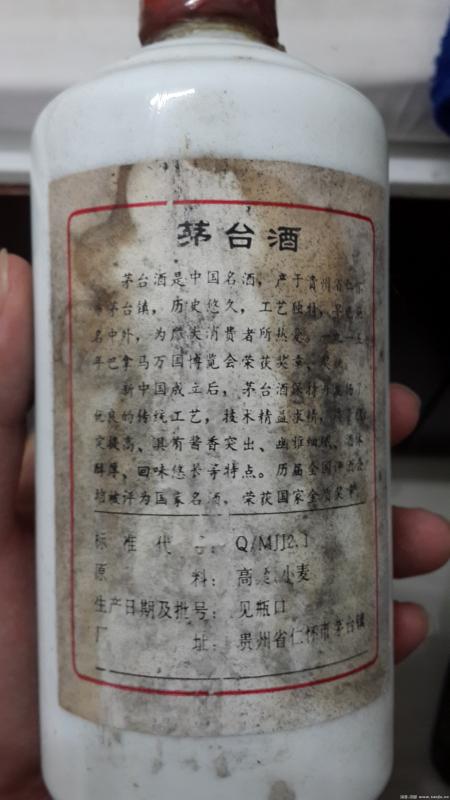 茅台酒
茅台酒是中国名酒，产于贵州省仁怀
茅台镇，历史悠久，工艺独特，
名中外，为广大消费者所热爱。一九一五
年巴拿马万国博览会荣获奖章、奖状。
新中国成立后，茅台酒保持并发扬了
优良的传统工艺，技术精益求精，
突提高、具有酱香突出、幽雅细腻、酒体
醇厚、回味悠长等特点。历届全国评酒会
均被评为国家名酒，荣获国家金质奖章。
标准代号：Q/MJJ2.1
原料：高粱.小麦
生产日期及批号：见瓶口
厂址：贵州省仁怀市茅台镇